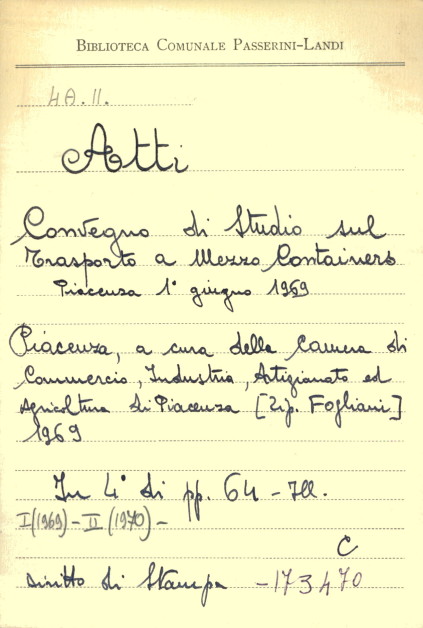 BIBLIOTECA COMUNALE PASSERINI-LANDI
4A.II.
Atti
Convegno di Studio sul
Trasporto a Mezzo Containers
Piacenza 1° giugno 1969
Piacenza, a cura della Camera di
Commercio, Industria, Artigianato ed
Agricoltura di Piacenza [Tip. Fogliani]
1969
In 4° di pp. 64 - Ill.
I(1969) - II (1970) -
C
diritto di Stampa - 173470